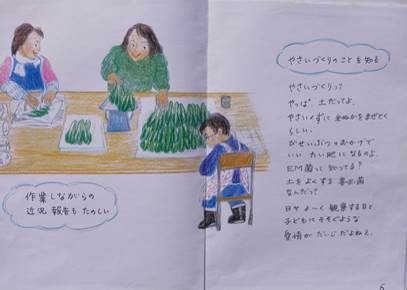 やさいづくりのことを知る
やさいづくりって
やっぱ、土だってよ。
やさいくずに 米ぬかをまぜとく
らしい。
びせいぶつのおかげで
いい たい肥になるのよ
EM菌って 知ってる？
土をよくする 善玉菌
なんだって
日々 よ〜く観察すること
子どもにそそぐような
愛情が だいじだよねえ。
作業しながらの
近況報告も たのしい
6